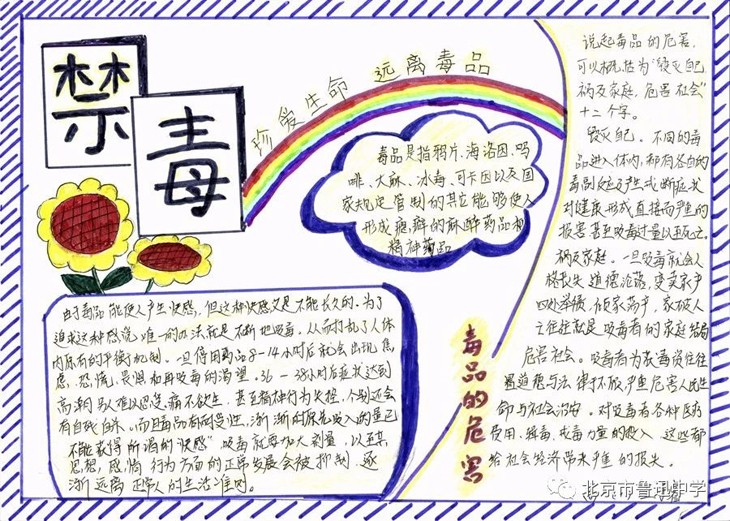 禁毒
珍爱生命 远离毒品
毒品是指鸦片、海洛因、吗
啡、大麻、冰毒、可卡因以及国
家规定管制的其它能够使人
形成瘾癖的麻醉药品和
精神药品
由于毒品能使人产生快感,但这种快感又是不能长久的。为了
追求这种感觉,唯一的办法就是不断地吸毒,从而打乱了人体
内原有的平衡机制。一旦停用毒品8-14小时后就会出现焦
虑、恐慌、畏惧和再吸毒的渴望。36-38小时后症状达到
高潮,
痛不欲生,甚至精神行为失控,个别还会
有自残自杀。而且毒品有耐受性,渐渐的原先吸入的量已
不能获得所渴的“快感”吸毒就要加大剂量,以至其
思想,感情,行为方面的正常发展会被抑制,逐
渐远离正常人的生活准则。
毒品的危害
说起毒品的危害,
可以概括为“毁灭自己,
祸及家庭,危害社会”
十二个字。
毁灭自己。不同的毒
品进入体内,都有各自的
毒副反应及产生戒断症状
对健康形成直接而严重的
损害甚至吸毒过量以至死亡。
祸及家庭。一旦吸毒就会人
格丧失,道德沦落,变卖家产
四处举债,倾家荡产,家破人
亡往往就是吸毒者的家庭结局
危害社会。吸毒者为获毒资往往
置道德与法律
严重危害人民生
命与社会治安。对吸毒者各种医药
费用、缉毒、戒毒力量的投入,这些都
给社会经济带来严重的损失。
北京市鲁迅中学